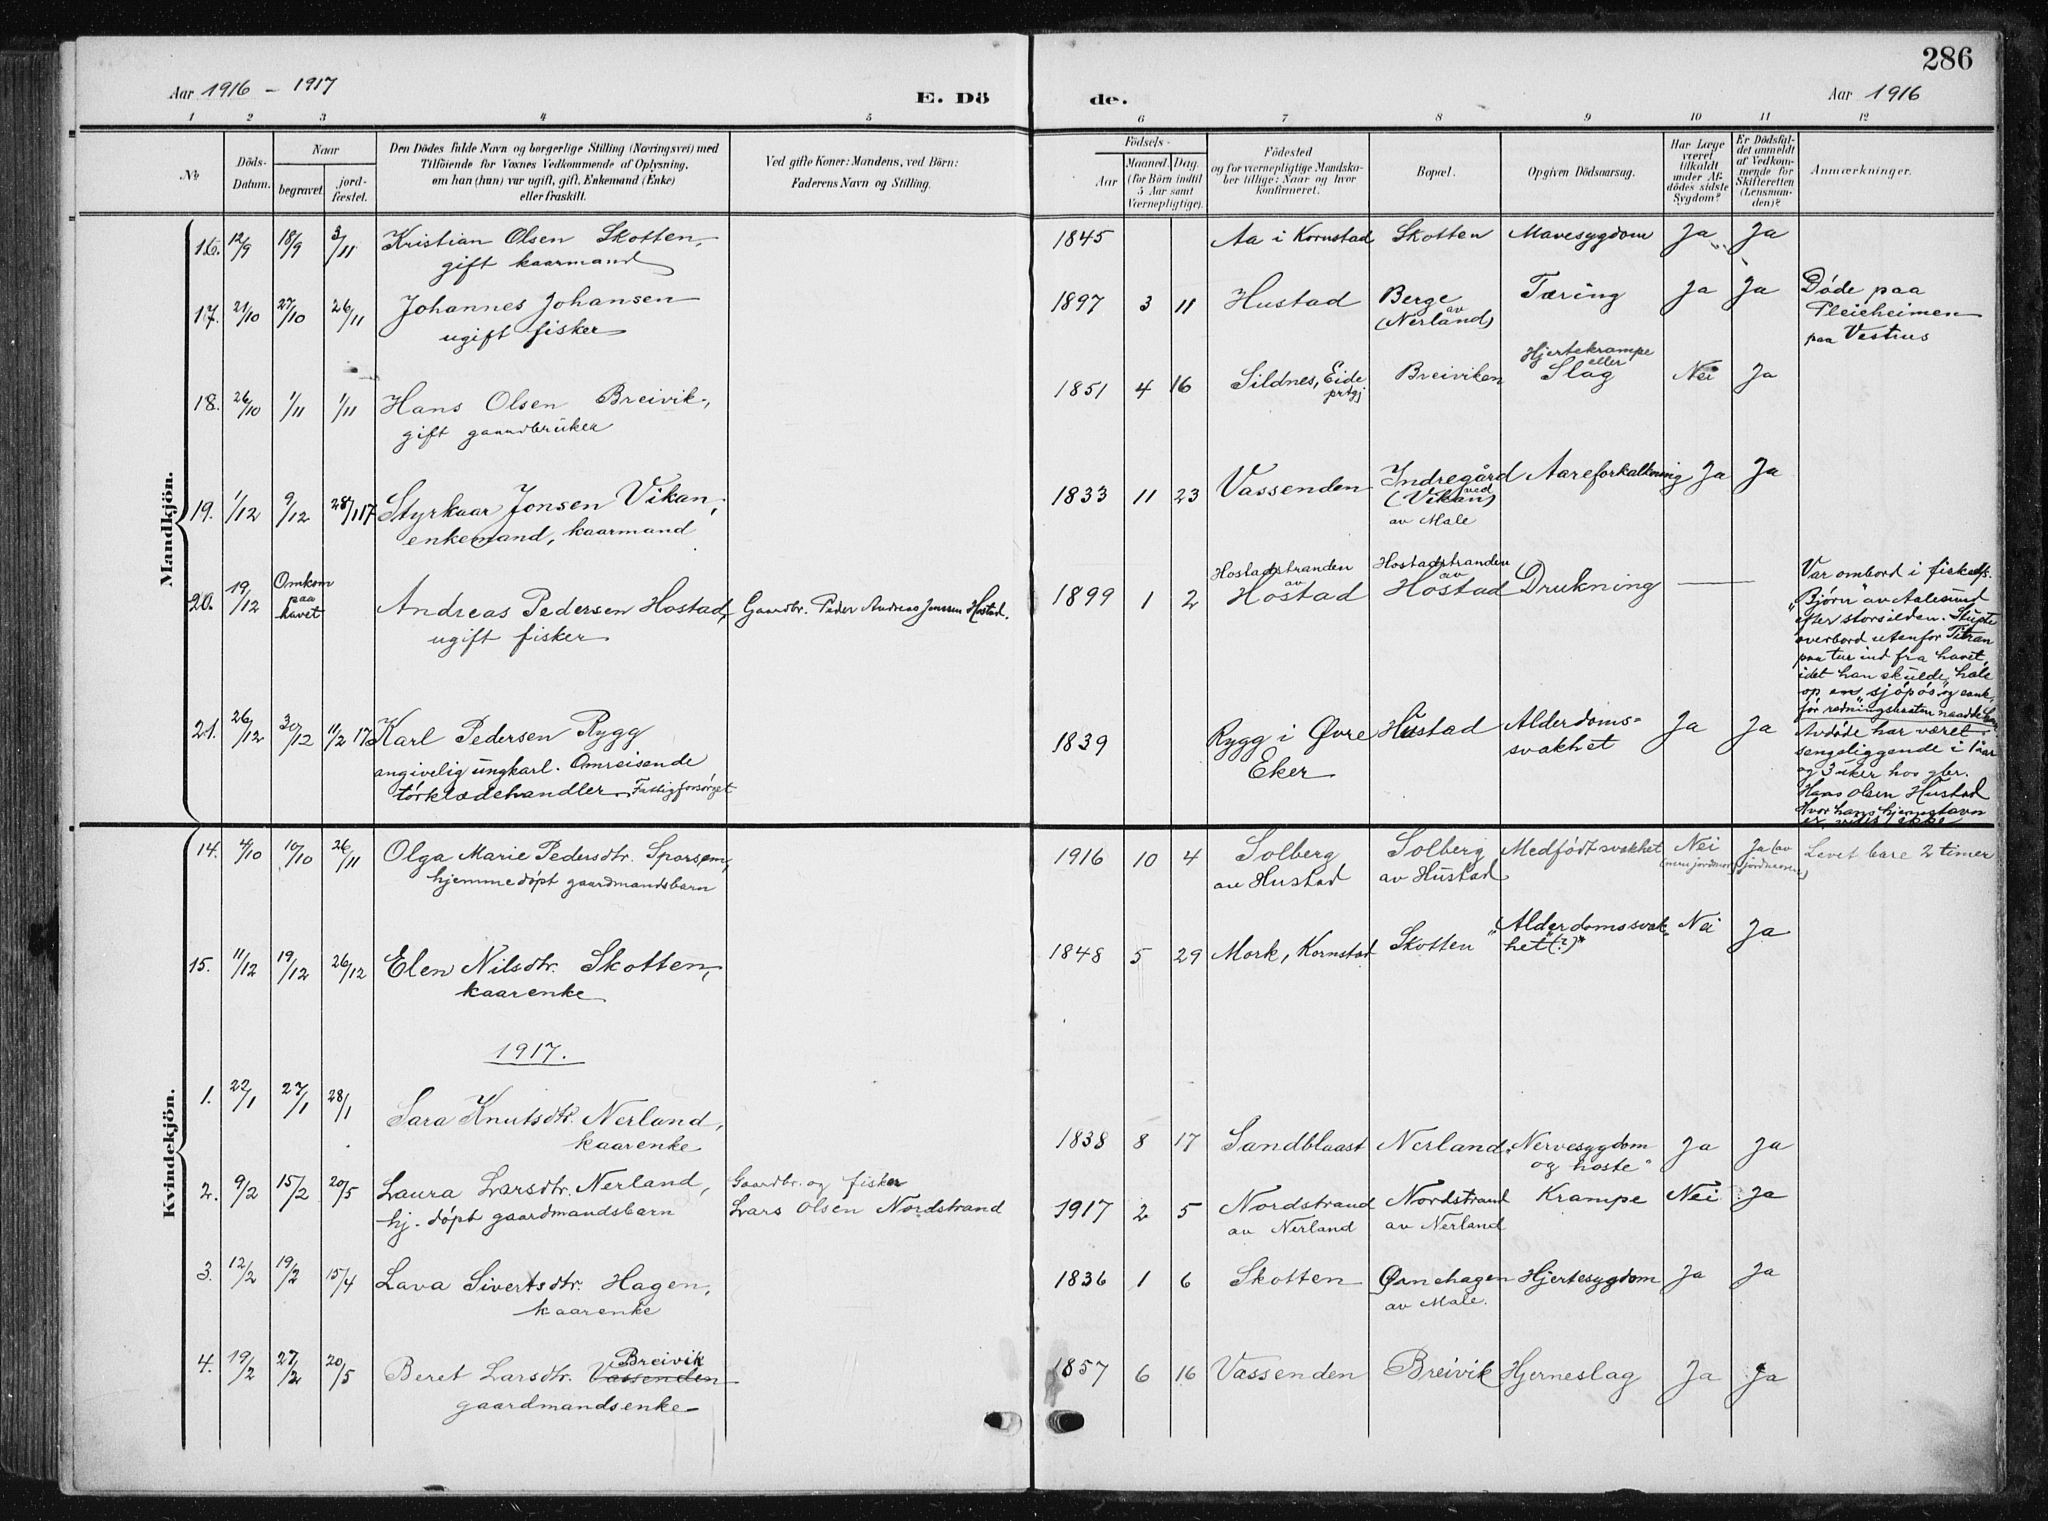 286
Aar 1916 - 1917
E. Dö de.
Aar 1916
1 2 3 4 5 6 7 8 9 10 11 12
No
Döds-Datum.
Naar
begravet.
jord-fæstet.
Den Dödes fulde Navn og borgerlige Stilling (Næringsvei) med
Tilföiende for Voxnes Vedkommende af Oplysning,
om han (hun) var ugift, gift, Enkemand (Enke)
eller fraskilt.
Ved gifte Koner: Mandens, ved Börn:
Faderens Navn og Stilling.
Födsels-
Aar
Maaned. Dag.
(for Börn indtil
5 Aar samt
Værnepligtige).
Födested
og for værnepligtige Mandska-
ber tillige: Naar og hvor
konfirmeret.
Bopæl.
Opgiven Dödsaarsag.
Har Læge
været
tilkaldt
under Af-
dödes sidste
Sygdom?
Er Dödsfal-
det anmeldt
af Vedkom-
mende for
Skifteretten
(Lensman-
den)?
Anmærkninger.
Mandkjön.
16. 12/9 18/9 3/11 Kristian Olsen Skotten, 1845 Aa i Kornstad Skotten Mavesygdom Ja Ja
gift kaarmand
17. 21/10 27/10 26/11 Johannes Johansen 1897 3 11 Hustad Berge Tæring Ja Ja Døde paa
ugift fisker av (Nerland) Pleieheimen
paa Vestnes
18. 26/10 1/11 1/11 Hans Olsen Breivik, 1851 4 16 Sildnes, Eide Breiviken Hjertekrampe Nei Ja
gift gaardbruker prtgj. eller Slag
19. 1/12 9/12 28/1 17 Styrkaar Jonsen Vikan, 1833 11 23 Vassenden Indregård Aareforkalkning Ja Ja
enkemand, kaarmand ved (Vikan)
av Male
20. 19/12 Omkom Andreas Pedersen Hostad, Gaardbr. Peder Andreas Jenssen Hostad. 1899 1 2 Hostadstranden Hostadstranden Drukning —
paa havet ugift fisker av Hostad av Hostad
Var ombord i fiskedf.
"Bjørn av Aalesund
efter storsilden. Stupte
overbord utenfor Titran
paa tur ind fra havet,
idet han skulde hale
op en "sjøpøs" og sank,
før redningsbaaten naadde
21. 26/12 30/12 11/2 17 Karl Pedersen Rygg 1839 Rygg i Øvre Hustad Alderdoms- Ja Ja
angivelig ungkarl. Omreisende Eker svakhet
tørklædehandler. Fattigforsørget
Avdøde har været
sengeliggende i 1 aar
og 3 uker hos gbr.
Hans Olsen Hustad
Hvor hans hjemstavn
er, vides ikke
Kvindekjön.
14. 4/10 10/10 26/11 Olga Marie Pedersdtr. Sporsem, 1916 10 4 Solberg Solberg Medfødt svakhet Nei Ja (av Levet bare 2 timer
hjemmedøpt gaardmandsbarn av Hustad av Hustad (men jordmor) jordmoren)
15. 11/12 19/12 26/12 Elen Nilsdtr. Skotten, 1848 5 29 Mork, Kornstad Skotten "Alderdomssvak- Nei Ja
kaarenke het (?)"
1917.
1. 22/1 27/1 28/1 Sara Knutsdtr. Nerland, 1838 8 17 Sandblaast Nerland "Nervesygdom Ja Ja
kaarenke og hoste"
2. 9/2 15/2 20/5 Laura Larsdtr. Nerland, Gaardbr. og fisker 1917 2 5 Nordstrand Nordstrand Krampe Nei Ja
hj. døpt gaardmandsbarn Lars Olsen Nordstrand av Nerland av Nerland
3. 12/2 19/2 15/4 Lava Sivertsdtr. Hagen, 1836 1 6 Skotten Ørnehagen Hjertesygdom Ja Ja
kaarenke av Male.
4. 19/2 27/2 20/5 Beret Larsdtr. Vassenden Breivik 1857 6 16 Vassenden Breivik Hjerneslag Ja Ja
gaardmandsenke